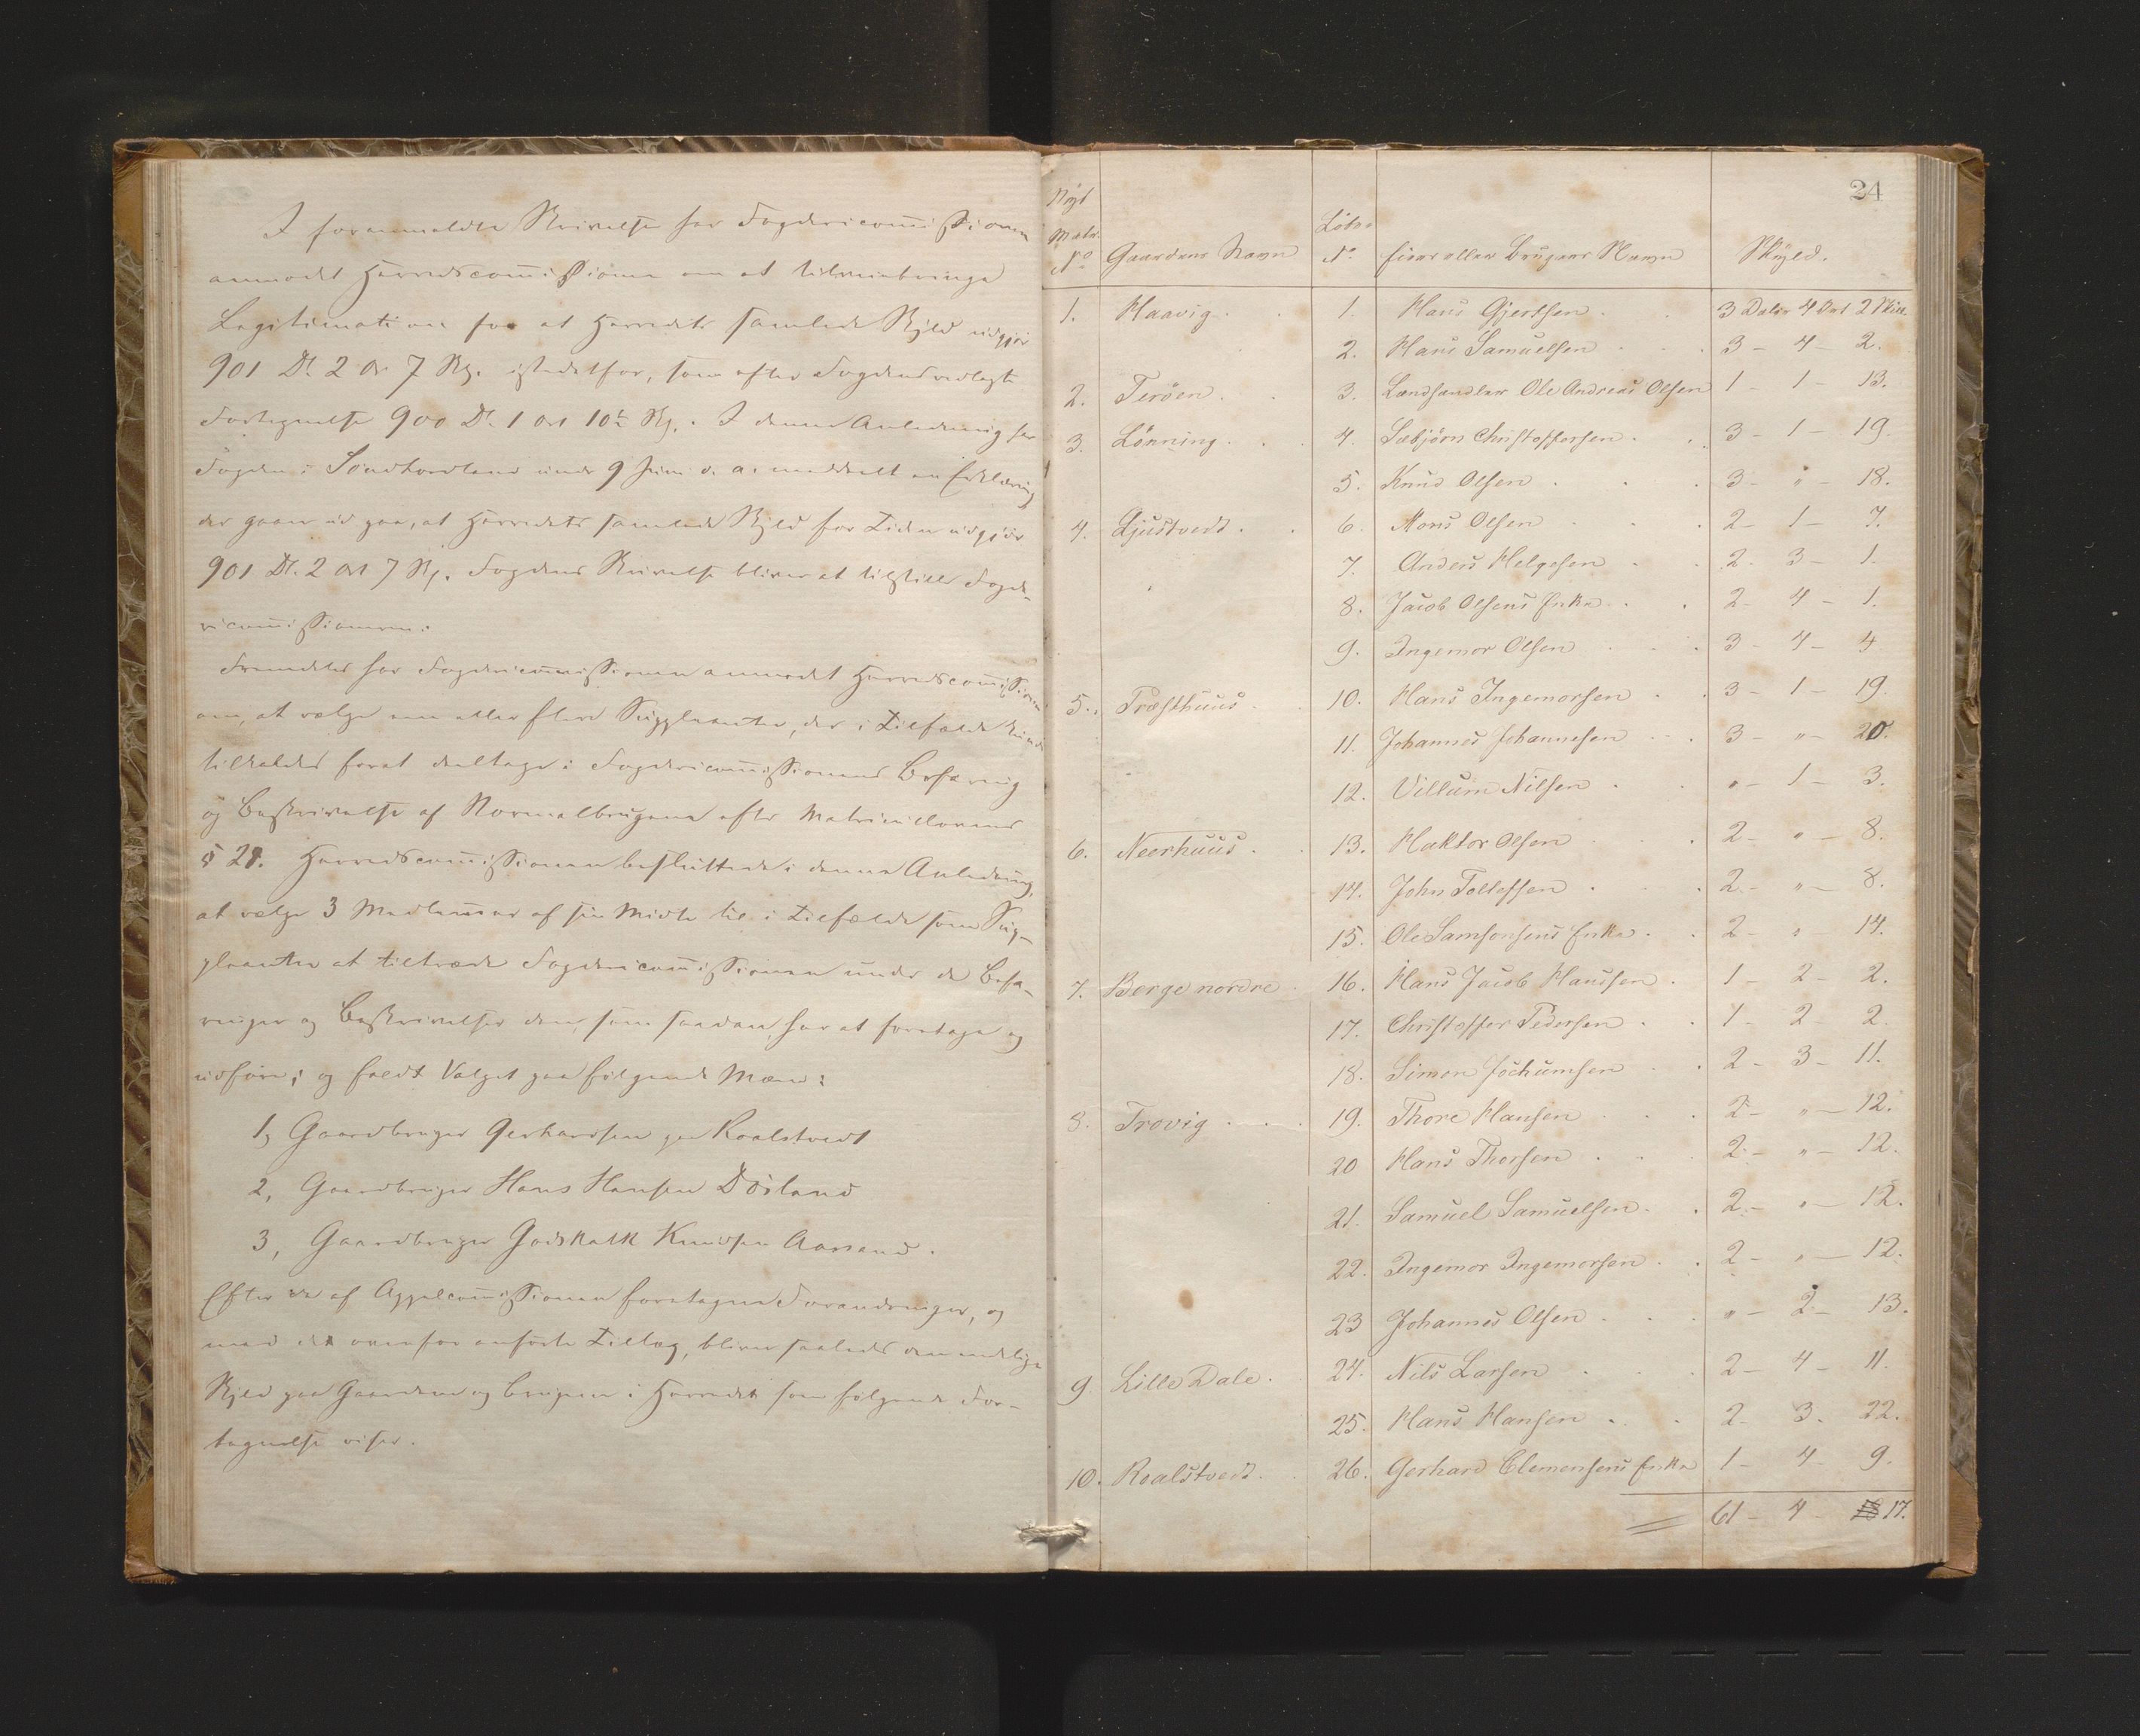 I foranmeldte Skrivelse har Fogdericommissionen
anmodet Herredscommissionen om at tilveiebringe
Legitimation for at Herredets samlede Skyld udgjør
901 Dl. 2 Or 7 Skj. istedetfor, som efter Fogdens vedlagte
Fortegnelse 900 Dl. 1 Ort 10 Skj. I denne Anledning har
Fogden i Søndhordland under 9 Juni d. a. meddelt en Erklæring
der gaar ud paa, at Herredets samlede Skyld for Tiden udgjør
901 Dl. 2 Ort 7 Skj. Fogdens Skrivelse bliver at tilstille Fogde-
ricommissionen.
Fremdeles har Fogdericommissionen anmodet Herredscommissionen
om, at vælge een eller flere Suppleanter, der i Tilfælde kunde
tilkaldes forat deeltage i Fogdericommissionens Befaring
og Beskrivelse af Normalbrugene efter Matriculloven
§ 28. Herredscommissionen besluttede i denne Anledning,
at vælge 3 Medlemmer af sin Midte til i Tilfælde som Sup-
pleanter at tiltræde Fogdericommissionen under de Befa-
ringer og Beskrivelser den, som saadan, har at foretage og
udføre; og faldt Valget paa følgende Mænd:
1, Gaardbruger Gerhardsen paa Roalstvedt
2, Gaardbruger Hans Hansen Døsland
3, Gaardbruger Godskalk Knudsen
Efter de af Appelcommissionen foretagne Forandringer, og
med det ovenfor anførte Tillæg, bliver saaledes den endelige
Skyld paa Gaardene og Brugene i Herredet som følgende For-
tegnelse viser.
24
Nyt Matr. No Gaardens Navn Løbe No Eiers eller Brugers Navn Skyld.
1. Haavig 1. Hans Gjertsen 3 Daler 4 Ort 2 Skill.
2. Hans Samuelsen 3 - 4 - 2.
2. Terøen 3. Landhandler Ole Andreas Olsen 1 - 1 - 13.
3. Lønning 4. Sæbjørn Christoffersen 3 - 1 - 19.
5. Knud Olsen 3 - " - 18.
4. Ljustvedt 6. Mons Olsen 2 - 1 - 7.
7. Anders Helgesen 2 - 3 - 1.
8. Jacob Olsens Enke 2 - 4 - 1.
9. Ingemor Olsen 3 - 4 - 4
5. Præsthuus 10. Hans Ingemorsen 3 - 1 - 19
11. Johannes Johannesen 3 - " - 20.
12. Villum Nilsen " - 1 - 3.
6. Neerhuus 13. Haktor Olsen 2 - " - 8.
14. John Tollefsen 2 - " - 8.
15. Ole Samsonsens Enke 2 - " - 14.
7. Berge nordre 16. Hans Jacob Hansen 1 - 2 - 2.
17. Christoffer Pedersen 1 - 2 - 2
18. Simen Jochumsen 2 - 3 - 11.
8. Trovig 19. Thore Hansen 2 - " - 12.
20 Hans Thorsen 2 - " - 12.
21. Samuel Samuelsen 2 - " - 12.
22. Ingemor Ingemorsen 2 - " - 12.
23 Johannes Olsen " - 2 - 13.
9. Lille Dale 24. Nils Larsen 2 - 4 - 11.
25. Hans Hansen 2 - 3 - 22.
10. Roalstvedt 26. Gerhard Clemensens Enke 1 - 4 - 9.
61 - 4 - 17.